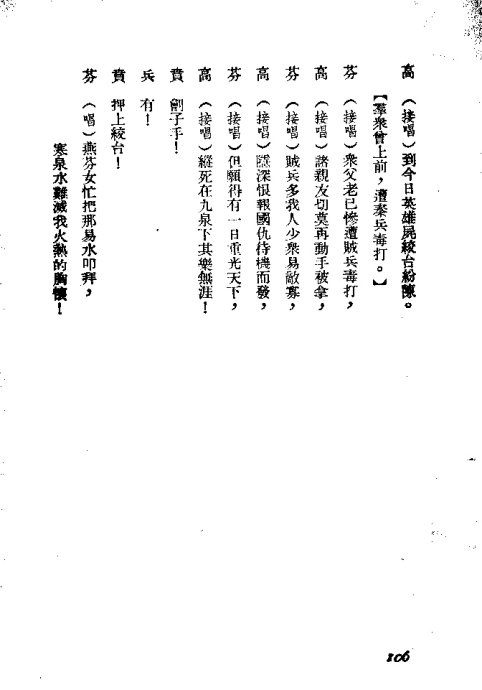 高　（接唱）到今日英雄屍絞台紛陳。
【羣衆曾上前，遭秦兵毒打。】
芬　（接唱）衆父老已慘遭賊兵毒打，
高　（接唱）諸親友切莫再動手被拿，
芬　（接唱）賊兵多我人少衆易敵寡，
高　（接唱）隱深恨報國仇待機而發，
芬　（接唱）但願得有一日重光天下，
高　（接唱）縱死在九泉下其樂無涯！
賁　劊子手！
兵　有！
賁　押上絞台！
芬　（唱）燕芬女忙把那易水叩拜，
寒泉水難滅我火熱的胸懷！
106